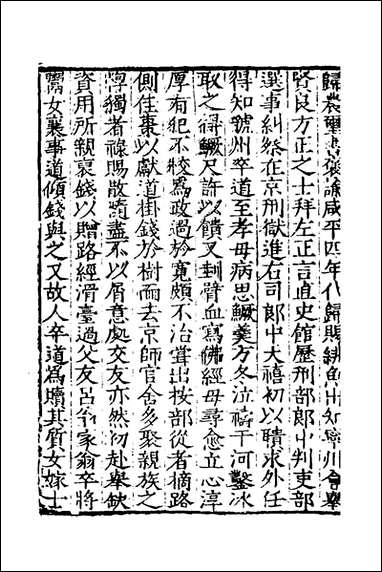 歸農璽書褒諭咸平四年代歸賜緋魚出知寧州會舉
賢良方正之士拜左正言直史館歷刑部郎中判吏部
選事糾察在京刑獄進右司郎中大禧初以聵求外任
得知虢州卒道至孝母病思鱖羹方冬泣禱于河鑿冰
取之得鱖尺許以饋又刲臂血寫佛經母尋愈立心淳
厚有犯不校爲政過於寬頗不治嘗出按部從者摘路
側佳棗以獻道掛錢於樹而去京師官舍多聚親族之
惸獨者祿賜散隨盡不以屑意處交友亦然初赴舉缺
資用所親裒錢以贈路經滑臺過父友呂翁家翁卒將
鬻女襄事道傾錢與之又故人卒道爲贖其質女嫁士